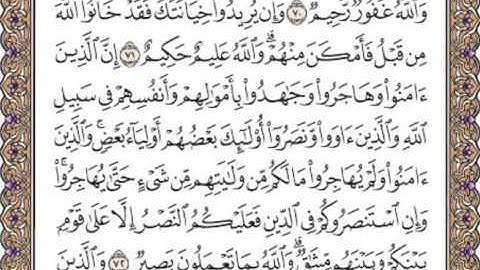 وَٱللَّهُ غَفُورٌ رَّحِيمٌ ۝٧٠ وَإِن يُرِيدُوا۟ خِيَانَتَكَ فَقَدْ خَانُوا۟ ٱللَّهَ
مِن قَبْلُ فَأَمْكَنَ مِنْهُمْ ۗ وَٱللَّهُ عَلِيمٌ حَكِيمٌ ۝٧١ إِنَّ ٱلَّذِينَ
ءَامَنُوا۟ وَهَاجَرُوا۟ وَجَٰهَدُوا۟ بِأَمْوَٰلِهِمْ وَأَنفُسِهِمْ فِى سَبِيلِ
ٱللَّهِ وَٱلَّذِينَ ءَاوَوا۟ وَّنَصَرُوٓا۟ أُو۟لَٰٓئِكَ بَعْضُهُمْ أَوْلِيَآءُ بَعْضٍ ۚ وَٱلَّذِينَ
ءَامَنُوا۟ وَلَمْ يُهَاجِرُوا۟ مَا لَكُم مِّن وَلَٰيَتِهِم مِّن شَىْءٍ حَتَّىٰ يُهَاجِرُوا۟ ۚ
وَإِنِ ٱسْتَنصَرُوكُمْ فِى ٱلدِّينِ فَعَلَيْكُمُ ٱلنَّصْرُ إِلَّا عَلَىٰ قَوْمٍۭ
بَيْنَكُمْ وَبَيْنَهُم مِّيثَٰقٌ ۗ وَٱللَّهُ بِمَا تَعْمَلُونَ بَصِيرٌ ۝٧٢ وَٱلَّذِينَ